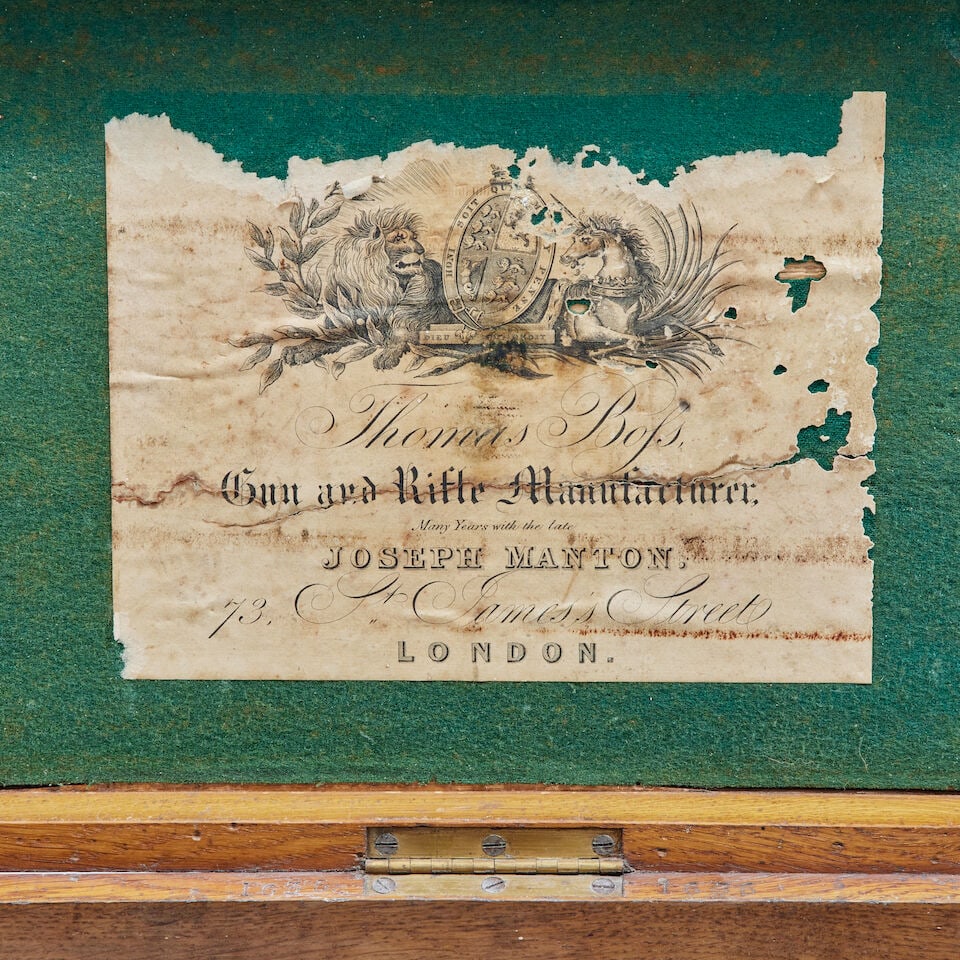 HONI SOIT QUI PENSE
DIEU ET MON
Thomas Boſs,
Gun and Rifle Manufacturer,
Many Years with the late
JOSEPH MANTON.
73, St. James's Street
LONDON.